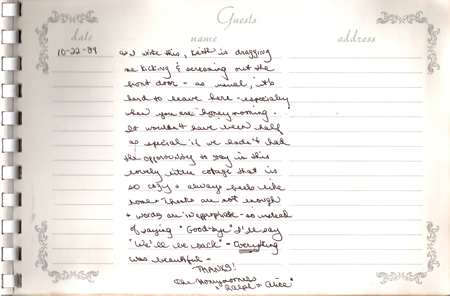 Guests
date name address
10-22-89 as I write this, Keith is dragging
me kicking & screaming out the
front door - as usual, it's
hard to leave here - especially
when you are "honeymooning".
It wouldn't have been half
as special if we hadn't had
the opportunity to stay in this
lovely little cottage that is
so cozy & always feels like
home. Thanks are not enough
& words are inappropriate - so instead
of saying "Good-bye" I'll say
"We'll be back" - Everything
was beautiful -
THANKS!
The Honeymooners
"Ralph & Alice"